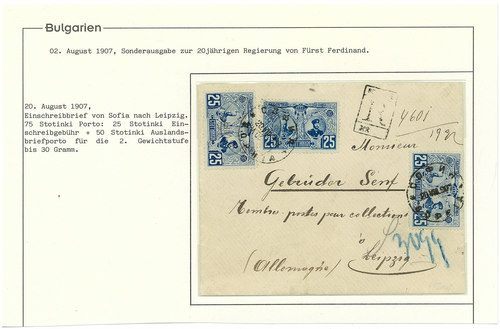 Bulgarien
02. August 1907, Sonderausgabe zur 20jährigen Regierung von Fürst Ferdinand.
20. August 1907,
Einschreibbrief von Sofia nach Leipzig.
75 Stotinki Porto: 25 Stotinki Ein-
schreibgebühr + 50 Stotinki Auslands-
briefporto für die 2. Gewichtsstufe
bis 30 Gramm.
25 25
25 25
4601
Monsieur
Gebrüder Senf
Timbres-postes pour collections
25 25
à
Leipzig
(Allemagne)